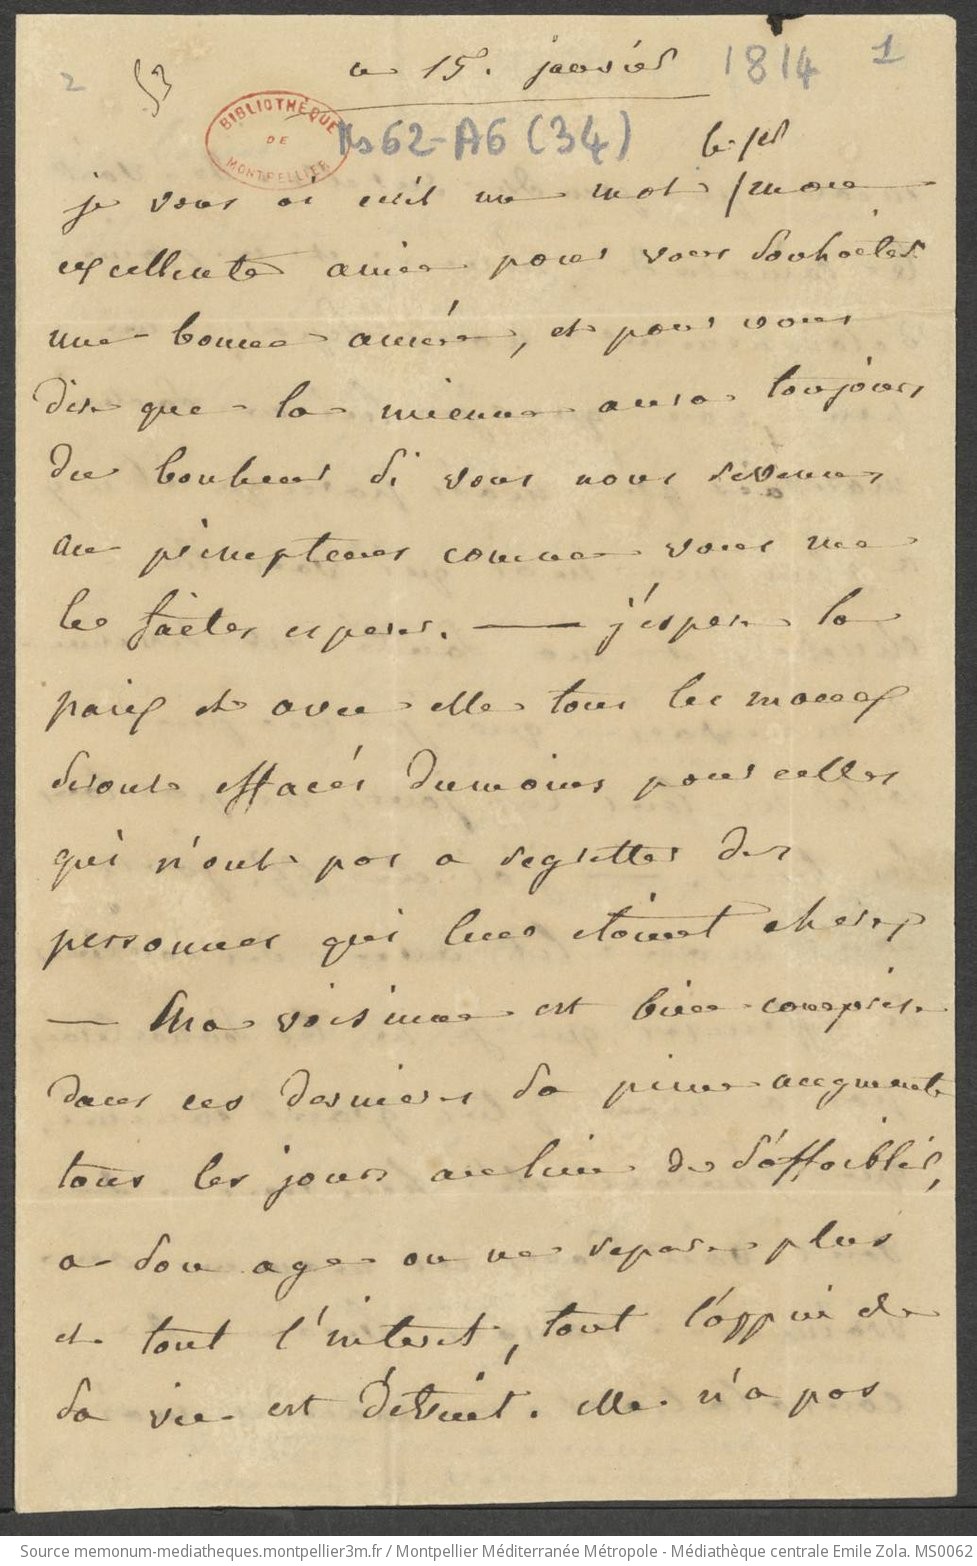 2 53 ce 15. janvier 1814 1
BIBLIOTHÈQUE DE MONTPELLIER
Ms 62-A6 (34)
le 1er
je vous ai ecrit un mot / mon
excellente amie pour vous souhaiter
une bonne année, et pour vous
dire que la mienne aura toujours
du bonheur si vous nous revenez
au printems comme vous me
le faites esperer. — j'espere la
paix et avec elle tous les maux
seront effacés dumoins pour celles
qui n'ont pas a regretter des
personnes qui leur étoient cheres
— Ma voisine est bien comprise
dans ces dernieres sa peine augmente
tous les jours au lieu de s'affoiblir,
a son age on ne repare plus
et tout l'interet, tout l'appui de
sa vie est détruit. elle n'a pas
Source memonum-mediatheques.montpellier3m.fr / Montpellier Méditerranée Métropole - Médiathèque centrale Emile Zola. MS0062